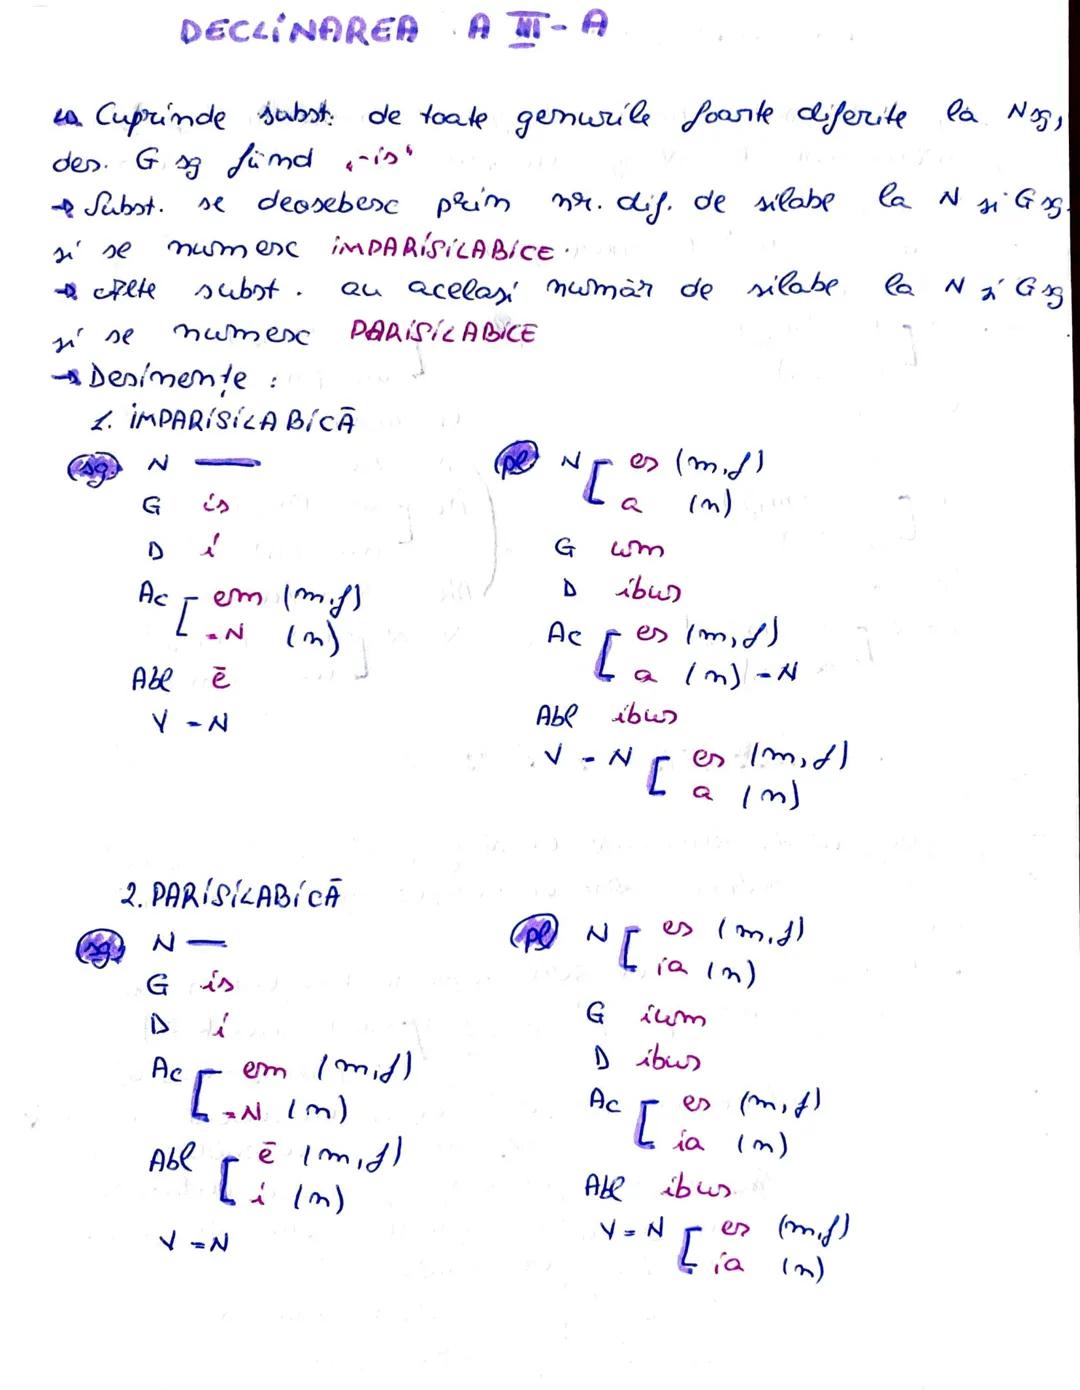 DECLINAREA A III-A
→ Cuprinde subst. de toate genurile foarte diferite la N sg,
des. G sg fiind „-is"
→ Subst. se deosebesc prin nr. dif. de silabe la N și G sg.
și se numesc IMPARISILABICE.
→ Alte subst. au același număr de silabe la N și G sg
și se numesc PARISILABICE
→ Desinențe :
1. IMPARISILABICĂ
sg. N —
G is
D i
Ac [ em (m,f)
= N (n)
Abl ē
V = N
pl N [ es (m,f)
a (n)
G um
D ibus
Ac [ es (m,f)
a (n) = N
Abl ibus
V = N [ es (m,f)
a (n)
2. PARISILABICĂ
sg. N —
G is
D i
Ac [ em (m,f)
= N (n)
Abl [ ē (m,f)
i (n)
V = N
pl N [ es (m,f)
ia (n)
G ium
D ibus
Ac [ es (m,f)
ia (n)
Abl ibus
V = N [ es (m,f)
ia (n)